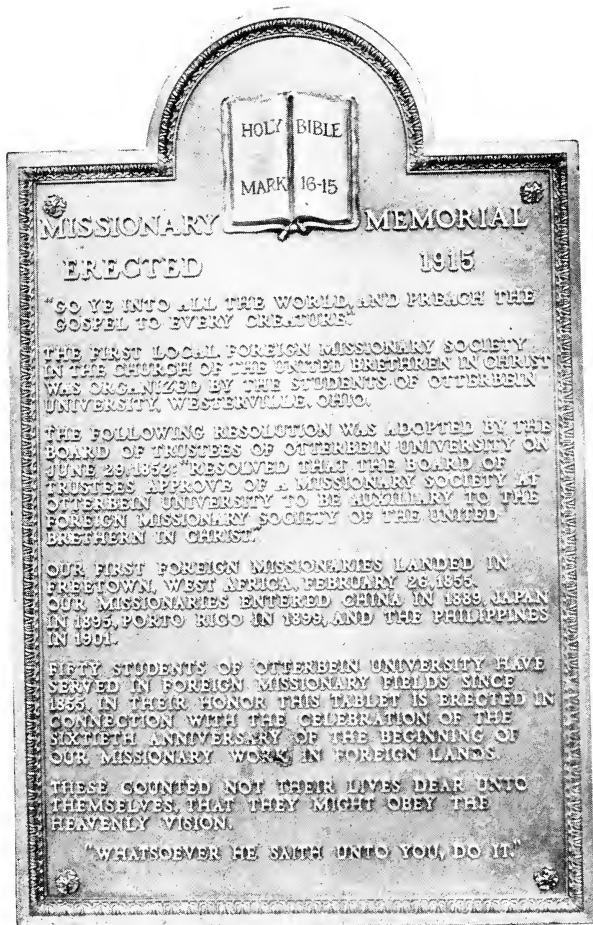 HOLY BIBLE
MARK 16-15
MISSIONARY MEMORIAL
ERECTED 1915
"GO YE INTO ALL THE WORLD, AND PREACH THE
GOSPEL TO EVERY CREATURE".
THE FIRST LOCAL FOREIGN MISSIONARY SOCIETY
IN THE CHURCH OF THE UNITED BRETHREN IN CHRIST
WAS ORGANIZED BY THE STUDENTS OF OTTERBEIN
UNIVERSITY, WESTERVILLE, OHIO.
THE FOLLOWING RESOLUTION WAS ADOPTED BY THE
BOARD OF TRUSTEES OF OTTERBEIN UNIVERSITY ON
JUNE 29, 1852; "RESOLVED THAT THE BOARD OF
TRUSTEES APPROVE OF A MISSIONARY SOCIETY AT
OTTERBEIN UNIVERSITY TO BE AUXILIARY TO THE
FOREIGN MISSIONARY SOCIETY OF THE UNITED
BRETHERN IN CHRIST."
OUR FIRST FOREIGN MISSIONARIES LANDED IN
FREETOWN, WEST AFRICA, FEBRUARY 26, 1855.
OUR MISSIONARIES ENTERED CHINA IN 1889, JAPAN
IN 1895, PORTO RICO IN 1899, AND THE PHILIPPINES
IN 1901.
FIFTY STUDENTS OF OTTERBEIN UNIVERSITY HAVE
SERVED IN FOREIGN MISSIONARY FIELDS SINCE
1855. IN THEIR HONOR THIS TABLET IS ERECTED IN
CONNECTION WITH THE CELEBRATION OF THE
SIXTIETH ANNIVERSARY OF THE BEGINNING OF
OUR MISSIONARY WORK IN FOREIGN LANDS.
THESE COUNTED NOT THEIR LIVES DEAR UNTO
THEMSELVES, THAT THEY MIGHT OBEY THE
HEAVENLY VISION.
"WHATSOEVER HE SAITH UNTO YOU, DO IT."